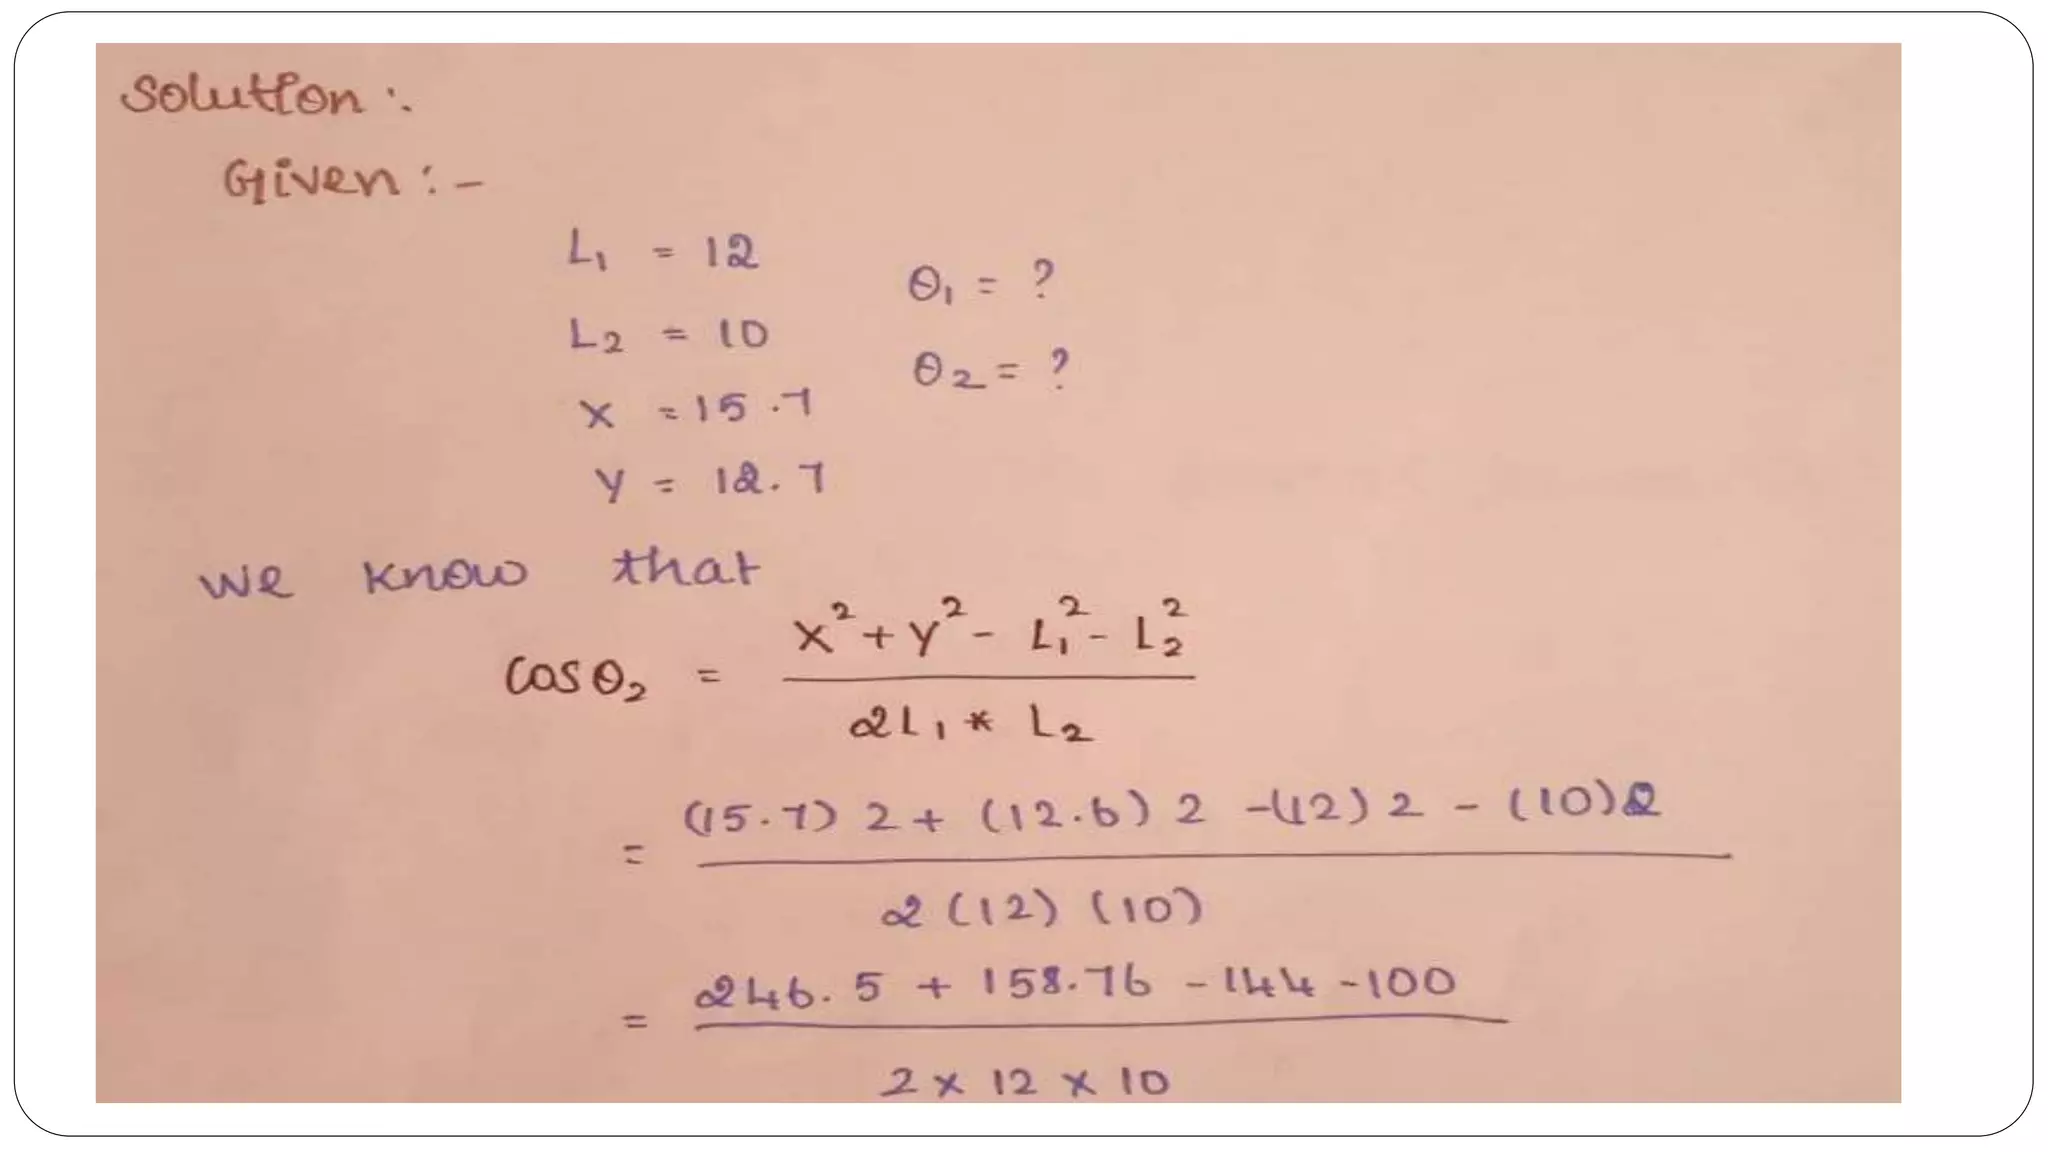 Solution :.
Given : -
L₁ = 12
θ₁ = ?
L₂ = 10
θ₂ = ?
X = 15.7
Y = 12.7
We know that
Cos θ₂ = X² + Y² - L₁² - L₂² / 2L₁ * L₂
= (15.7) 2 + (12.6) 2 - (12) 2 - (10) 2 / 2 (12) (10)
= 246.5 + 158.76 - 144 - 100 / 2 × 12 × 10